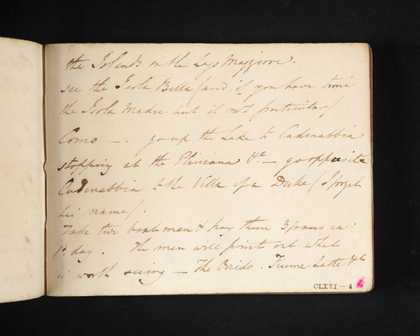 the Islands on the Lago Maggiore.
see the Isola Bella (and if you have time
the Isola Madre but it not particular)
Como —. go up the Lake to Cadenabbia
stopping at the Pliniana &c — go opposite
Cadenabbia to the Villa of a Duke (I forget
his name).
Take two boatmen & pay them 3 francs ea:
pr day. The men will point out what
is worth seeing — The Orrido.
CLXVI - 4